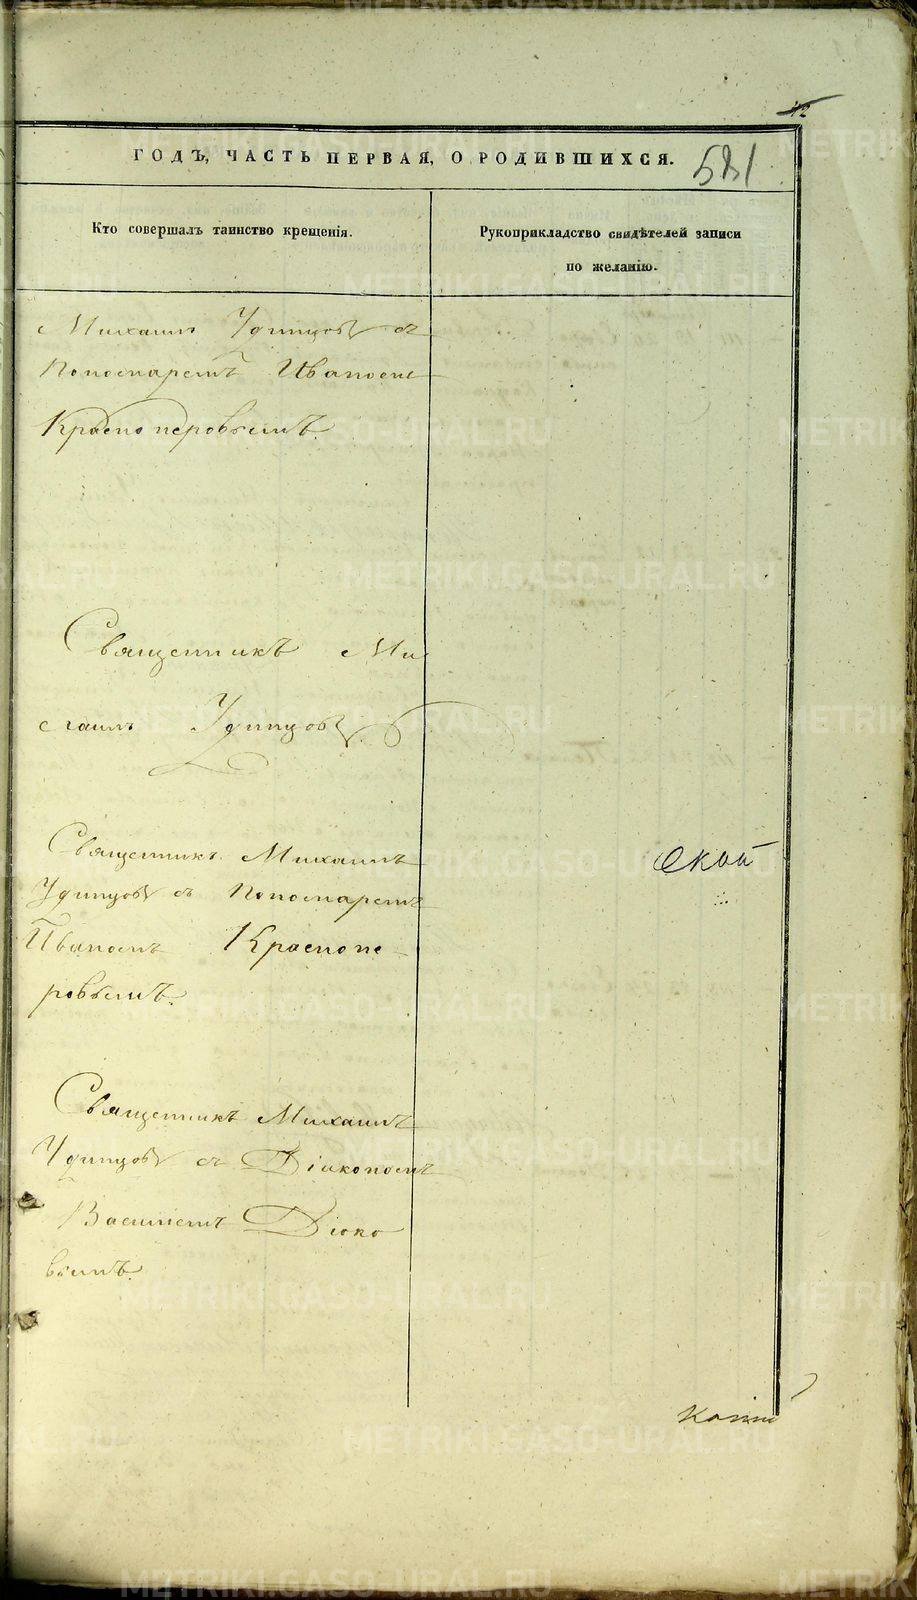 42
ГОДЪ, ЧАСТЬ ПЕРВАЯ, О РОДИВШИХСЯ.
581
Кто совершалъ таинство крещенія.
Рукоприкладство свидѣтелей записи
по желанію.
Михаилъ Удинцовъ съ
Пономаремъ Иваномъ
Красноперовымъ.
Священникъ Ми
хаилъ Удинцовъ.
Священникъ Михаилъ
Удинцовъ съ Пономаремъ
Иваномъ Краснопе-
ровымъ.
Священникъ Михаилъ
Удинцовъ съ Діакономъ
Василіемъ Дюко
вымъ.
ской
METRIKI.GASO-URAL.RU